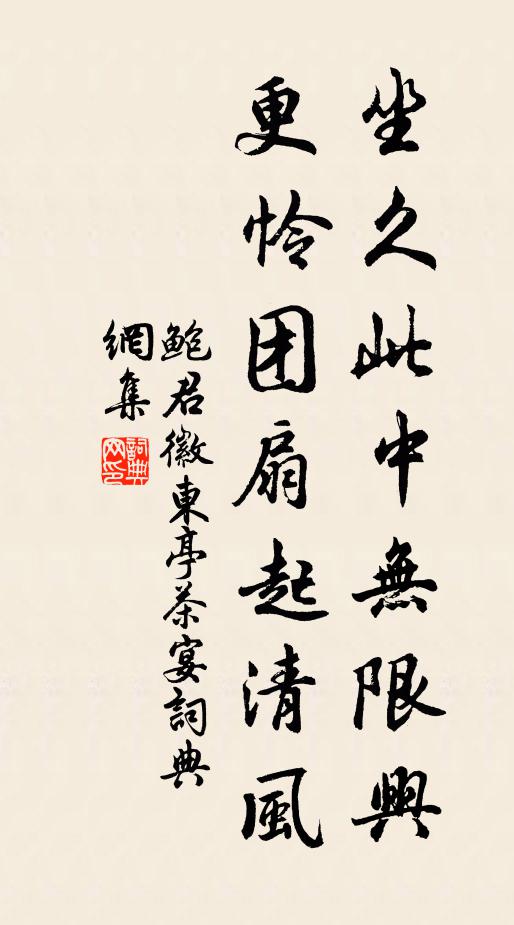 坐久此中無限興
更怜团扇起清風
鲍君徽東亭茶宴詞典
網集
詞典網印